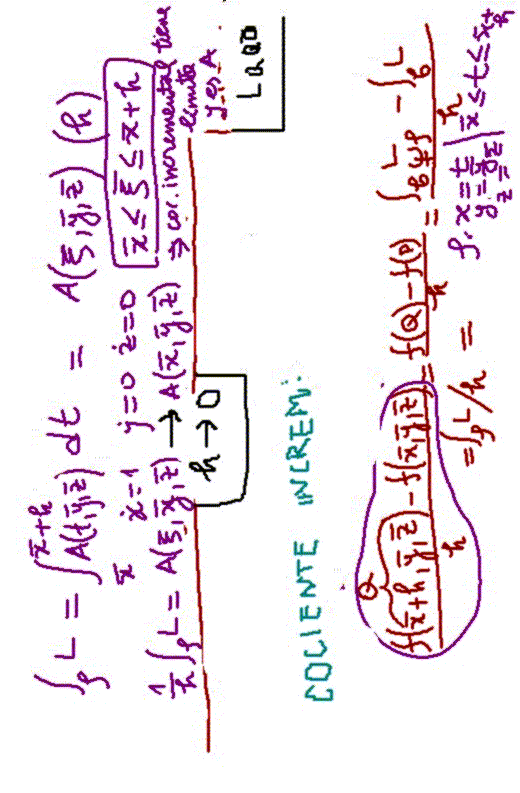 ∫_ρ L = ∫_x̄^{x̄+h} A(t,ȳ,z̄) dt = A(ξ,ȳ,z̄) (h)
ẋ=1 ẏ=0 ż=0 x̄ ≤ ξ ≤ x̄+h
1/h ∫_ρ L = A(ξ,ȳ,z̄) → A(x̄,ȳ,z̄) ⇒ coc. incremental tiene
limite
y es A
h → 0
LQQD
COCIENTE INCREM:
Q
f(x̄+h,ȳ,z̄) - f(x̄,ȳ,z̄) / h = f(Q) - f(P) / h = ∫_{β+ρ} L - ∫_β L / h
= ∫_ρ L/h = ρ. x=t y=ȳ z=z̄ | x̄ ≤ t ≤ x̄+h